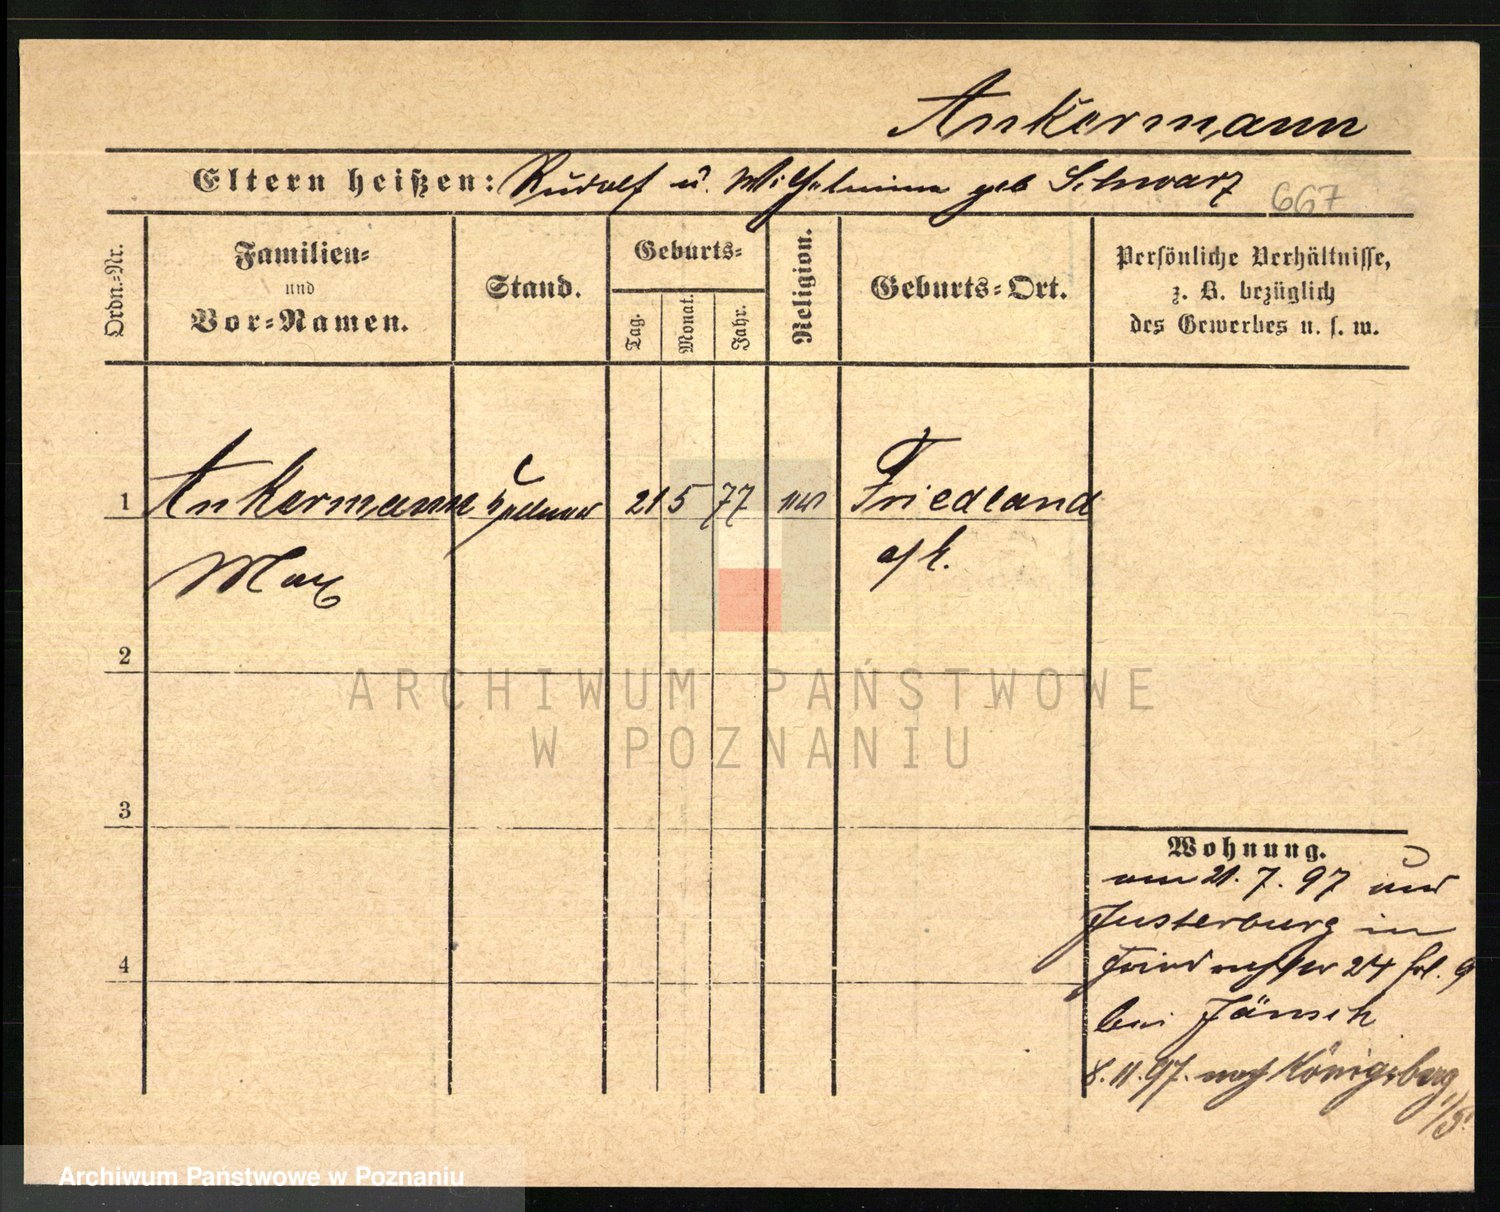 Ankermann
Eltern heißen: Rudolf u. Wilhelmina geb Schwarz
667
Ordn.-Nr.
Familien-
und
Vor-Namen.
Stand.
Geburts-
Tag.
Monat.
Jahr.
Religion.
Geburts-Ort.
Persönliche Verhältnisse,
z. B. bezüglich
des Gewerbes u. s. w.
1 Ankermann Kellner 21 5 77 Friedland
Max
2
3
4
Wohnung.
21.7.97
Insterburg in
24
bei Jänsch
8.11.97. nach Königsberg
ARCHIWUM PAŃSTWOWE
W POZNANIU
Archiwum Państwowe w Poznaniu